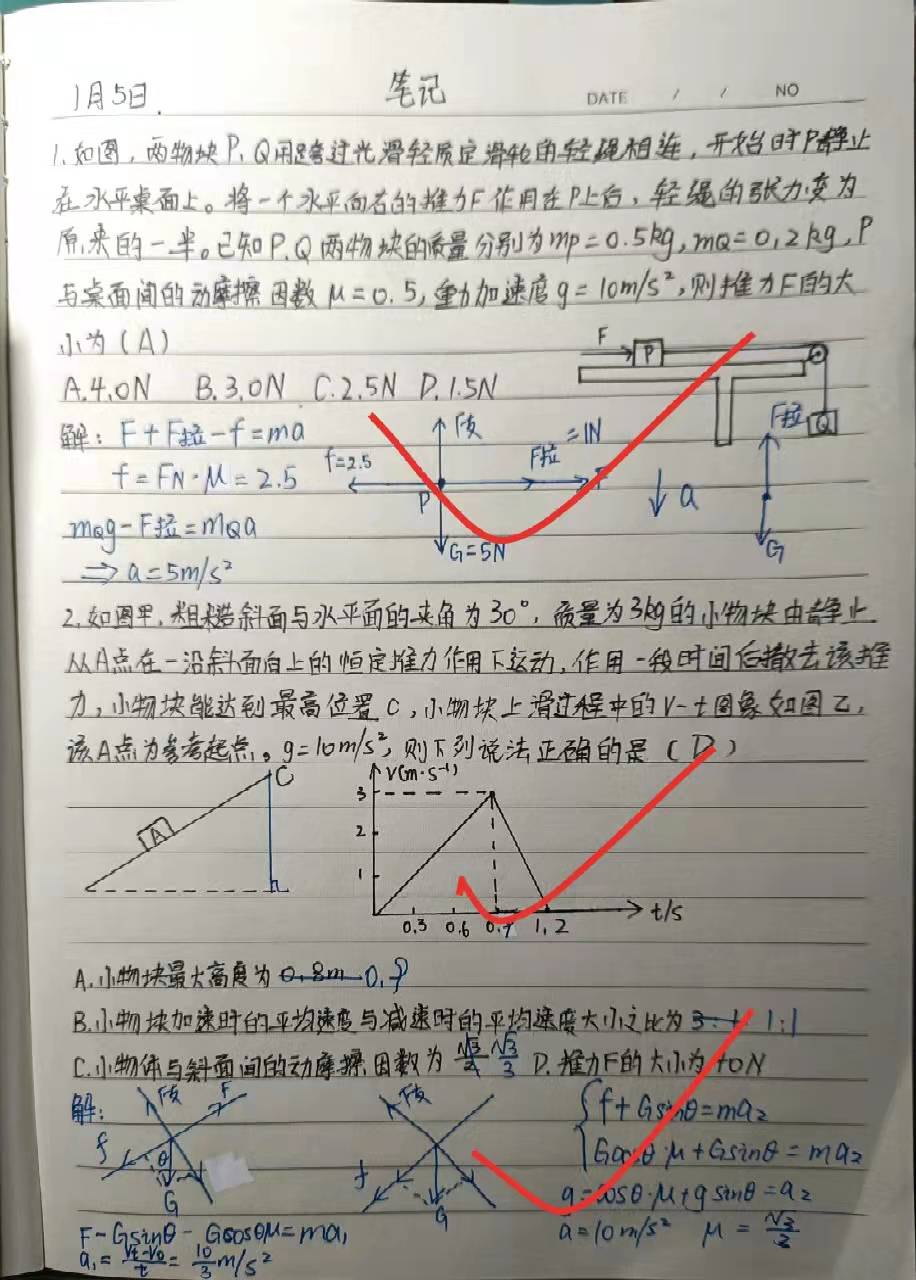 1月5日.
笔记
DATE / / NO
1.如图，两物块P、Q用跨过光滑轻质定滑轮的轻绳相连，开始时P静止
在水平桌面上。将一个水平向右的推力F作用在P上后，轻绳的张力变为
原来的一半。已知P、Q两物块的质量分别为mp=0.5kg,mQ=0.2kg,P
与桌面间的动摩擦因数μ=0.5,重力加速度g=10m/s²,则推力F的大
小为(A)
A.4.0N B.3.0N C.2.5N D.1.5N
F
P
Q
解: F+F拉-f=ma
f=FN·μ=2.5
mQg-F拉=mQa
⇒a=5m/s²
F支
f=2.5
F拉=1N
F
P
G=5N
a
F拉
G
2.如图甲,粗糙斜面与水平面的夹角为30°,质量为3kg的小物块由静止
从A点在一沿斜面向上的恒定推力作用下运动,作用一段时间后撤去该推
力,小物块能达到最高位置C,小物块上滑过程中的V-t图象如图乙,
设A点为参考起点。g=10m/s²,则下列说法正确的是(D)
A
C
V(m·s⁻¹)
3
2
1
0.3 0.6 0.9 1.2 t/s
A.小物块最大高度为0.8m 0.9
B.小物块加速时的平均速度与减速时的平均速度大小之比为3:1 1:1
C.小物体与斜面间的动摩擦因数为 √3/2 √3/3 D.推力F的大小为40N
解:
F支
F
f
θ
G
F支
f
G
F-Gsinθ-Gcosθμ=ma₁
a₁=Vt-V0/t=10/3m/s²
f+Gsinθ=ma₂
Gcosθ·μ+Gsinθ=ma₂
g=cosθ·μ+gsinθ=a₂
a=10m/s² μ=√3/3